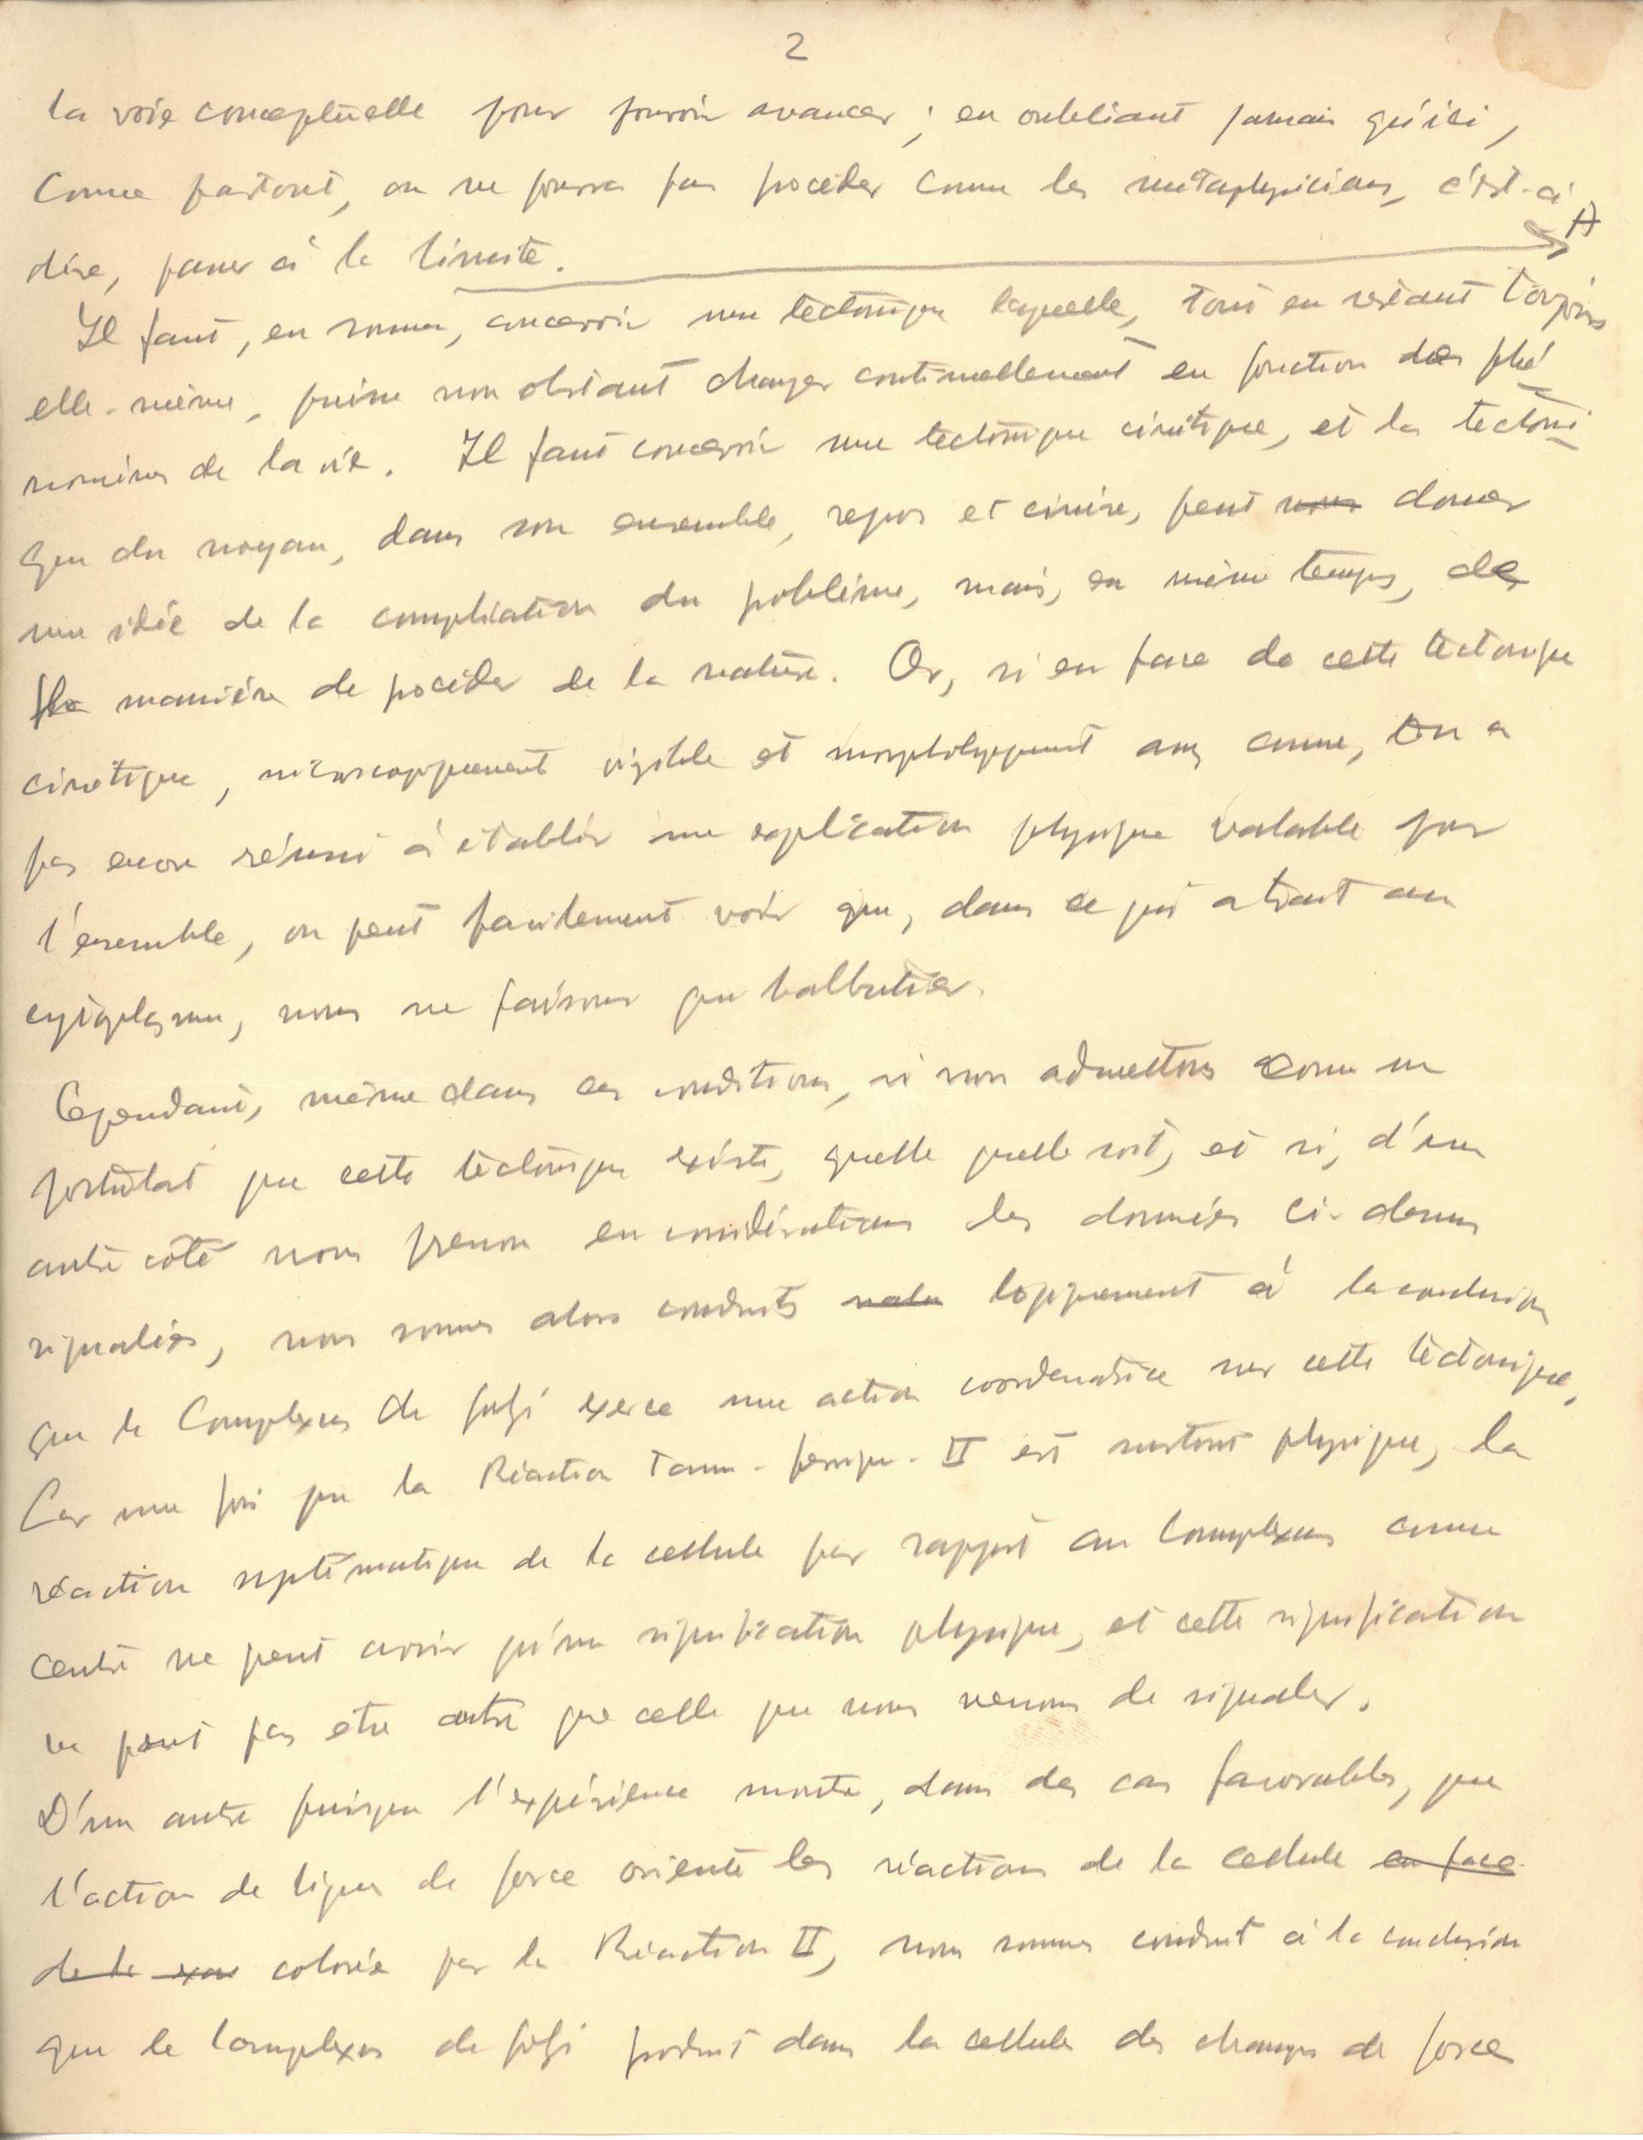 2
la voie conceptuelle pour pouvoir avancer ; en oubliant jamais qu'ici,
comme partout, on ne pourra pas proceder comme les métaphysiciens, c'est-à
dire, passer à la limite. A
Il faut, en somme, concevoir une tectonique laquelle, tout en restant toujours
elle-même, puisse non obstant changer continuellement en fonction des phé
nomènes de la vie. Il faut concevoir une tectonique cinétique, et la tectoni
que du noyau, dans son ensemble, repos et cinèse, peut nous donner
une idée de la complication du problème, mais, en même temps, de
la manière de procéder de la nature. Or, si en face de cette tectonique
cinétique, microscopiquement visible et morphologiquement assez connue, on a
pas encore réussi à établir une explication physique valable pour
l'ensemble, on peut facilement voir que, dans ce qui a trait au
cytoplasme, nous ne faisons que balbutier.
Cependant, même dans ces conditions, si nous admettons comme un
postulat que cette tectonique existe, quelle quelle soit, et si, d'un
autre côté nous prenons en considérations les données ci-dessus
signalées, nous sommes alors conduits logiquement à la conclusion
que le Complexus de Golgi exerce une action coordenatrice sur cette tectonique,
Car une fois que la Réaction Tann-ferrique-II est surtout physique, la
réaction systématique de la cellule par rapport au Complexus comme
centre ne peut avoir qu'une signification physique, et cette signification
ne peut pas etre autre que celle que nous venons de signaler.
D'un autre puisque l'expérience montre, dans des cas favorables, que
l'action de lignes de force oriente les réactions de la cellule en face
de la colorée par la Réaction II, nous sommes conduit à la conclusion
que le Complexus de Golgi produit dans la cellule des champs de force